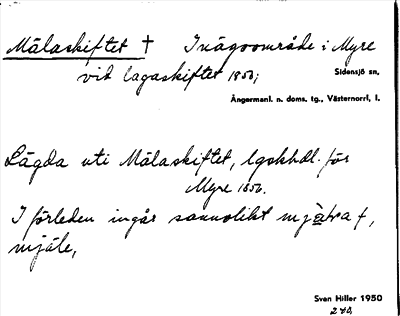 Mälaskiftet † Inägoområde i Myre
vid lagaskiftet 1850;
Sidensjö sn,
Ångermanl. n. doms. tg., Västernorrl. l.
Lägda uti Mälaskiftet, lgskhdl. för
Myre 1850.
I förleden ingår sannolikt mjäla f,
mjäle,
Sven Hiller 1950